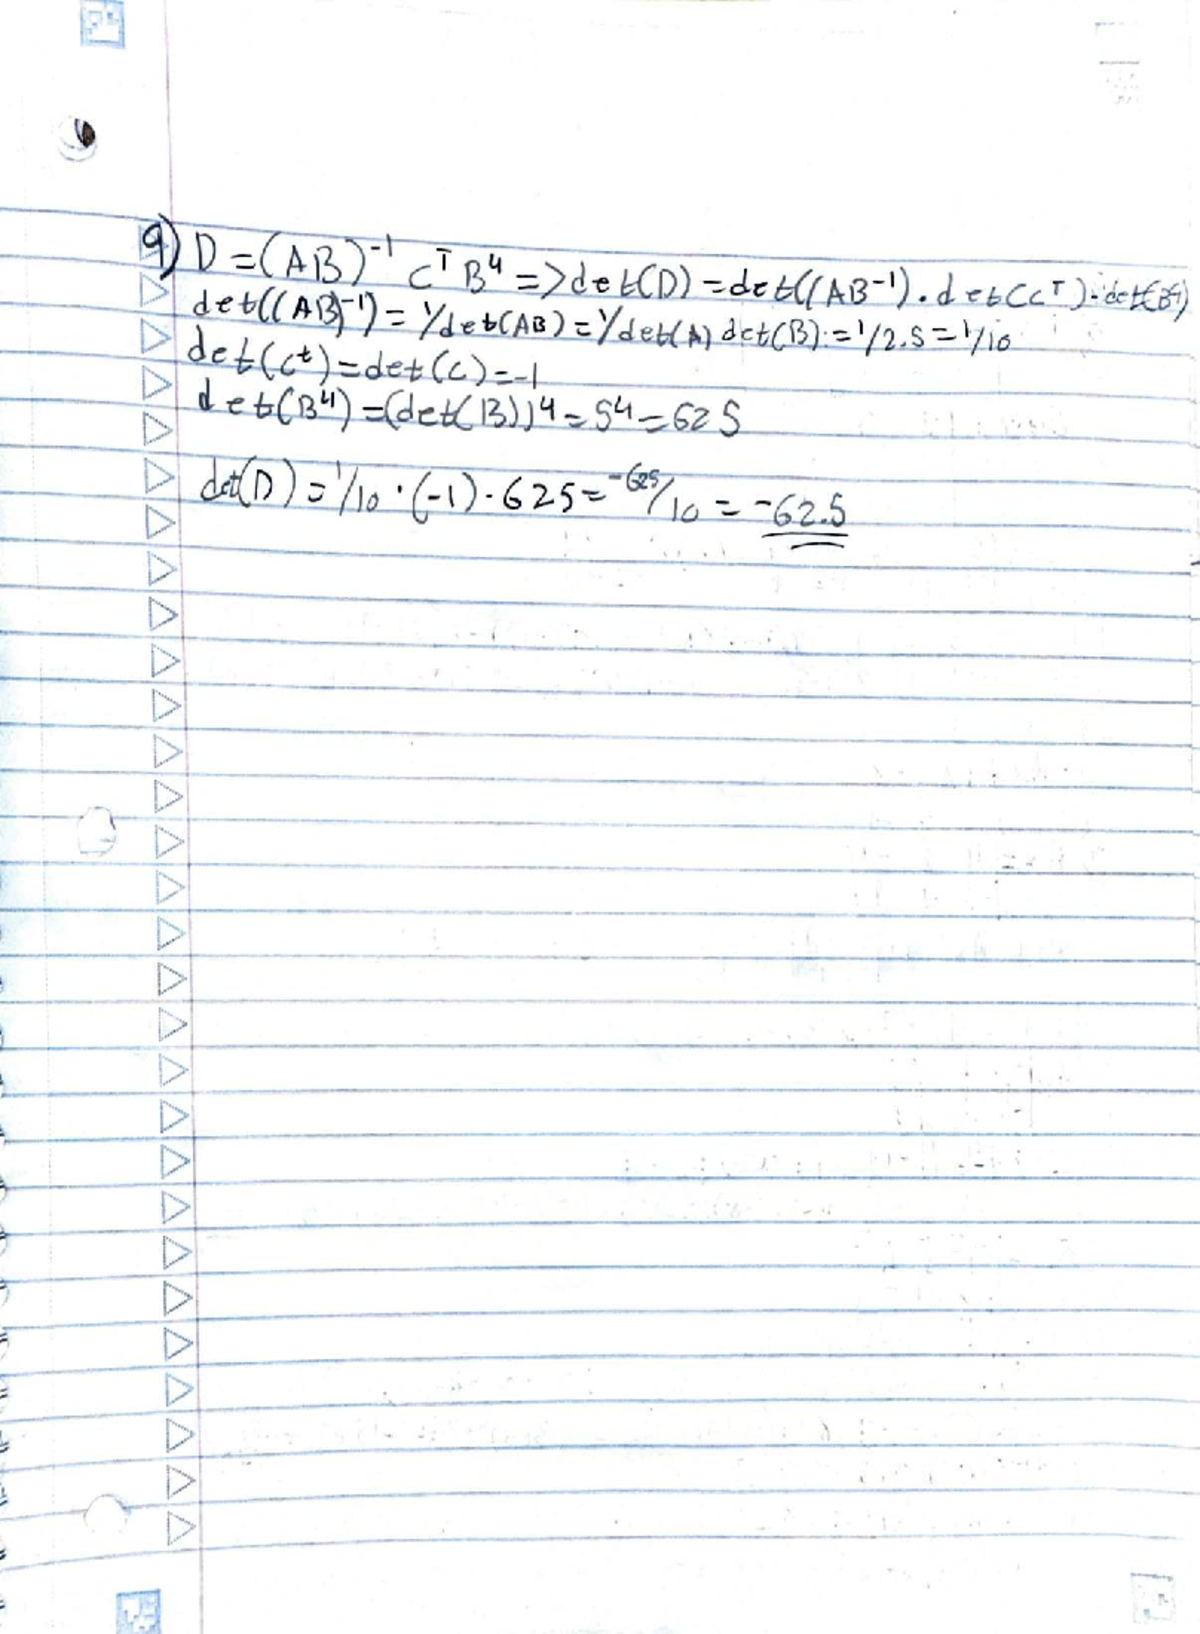 9) D = (AB)⁻¹ Cᵀ B⁴ => det(D) = det((AB⁻¹) . det(Cᵀ) . det(B⁴)
det((AB)⁻¹) = 1/det(AB) = 1/det(A) det(B) = 1/2.5 = 1/10
det(Cᵗ) = det(C) = -1
det(B⁴) = (det(B))⁴ = 5⁴ = 625
det(D) = 1/10 · (-1) · 625 = -625/10 = -62.5